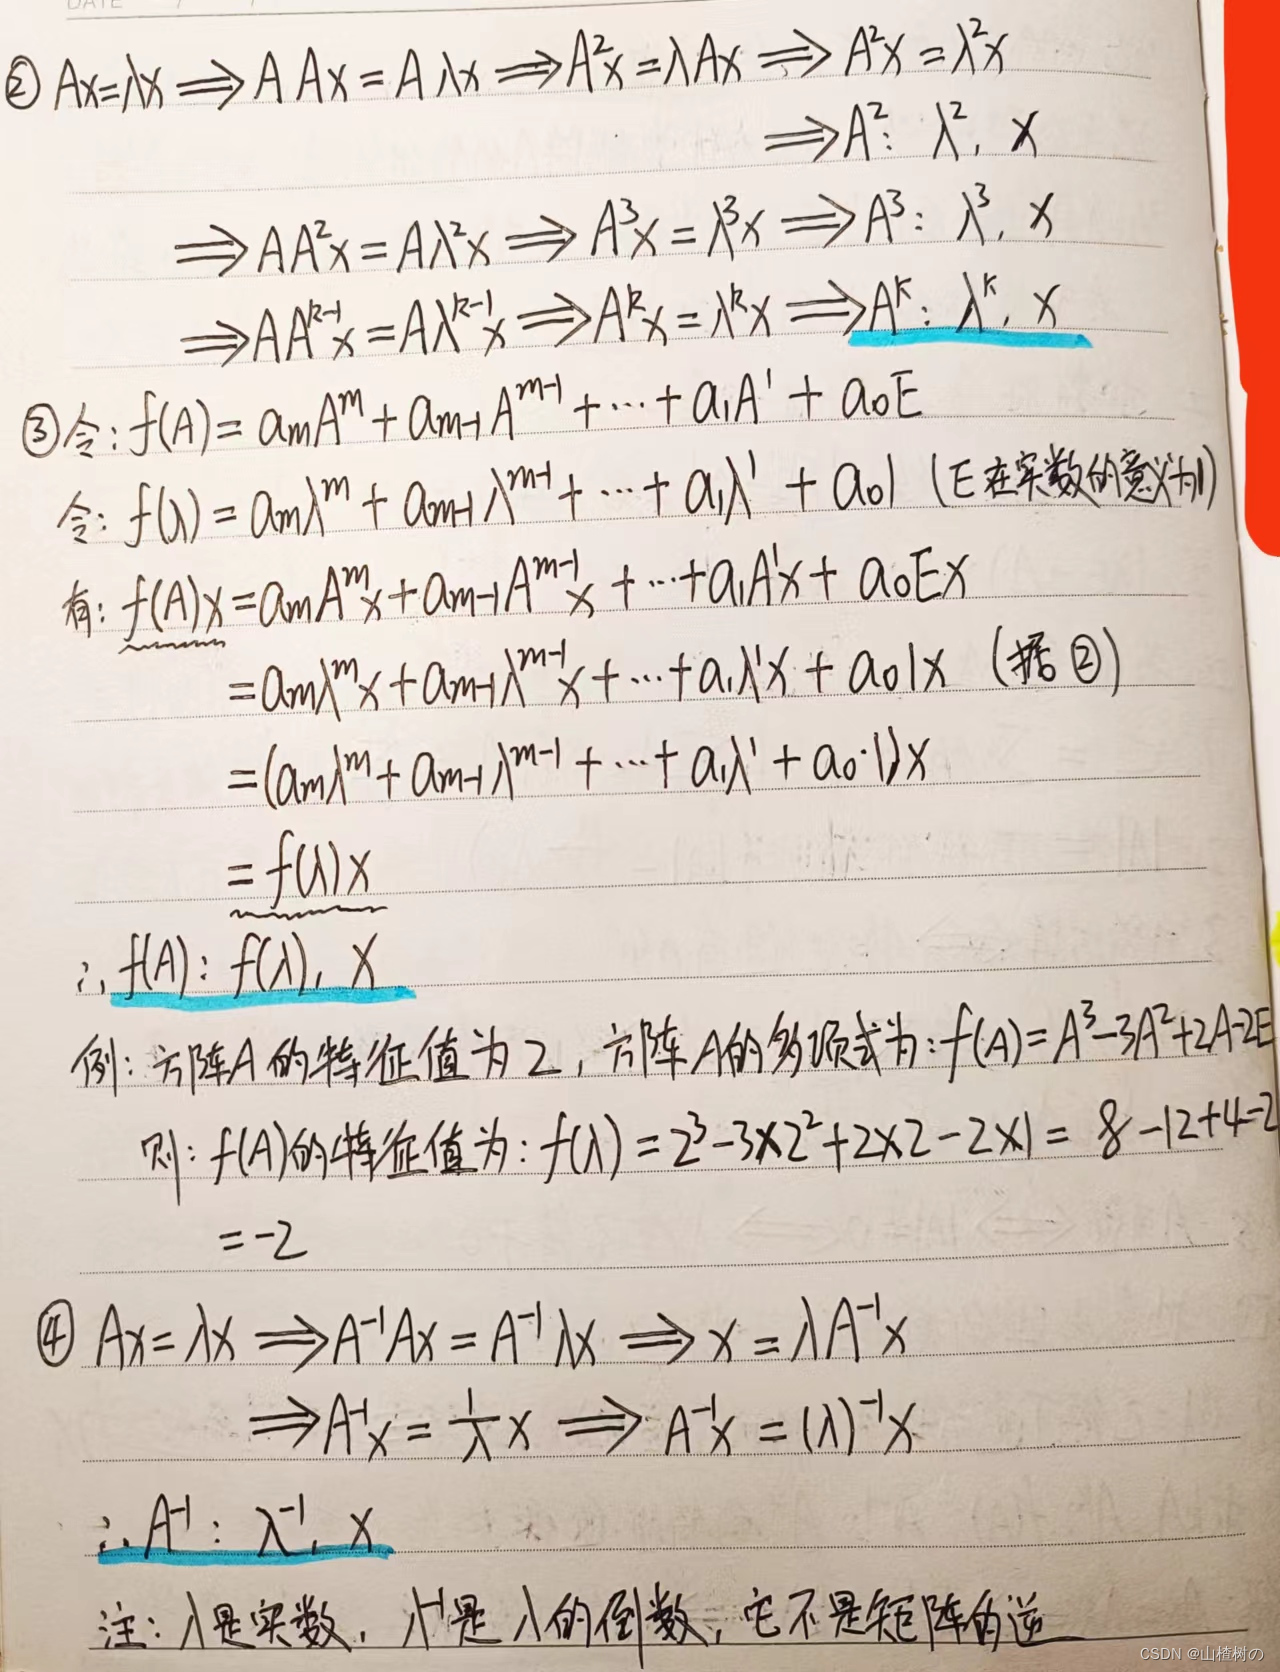 DATE / /
② Ax=λx ⟹ A Ax = A λx ⟹ A²x = λAx ⟹ A²x = λ²x
⟹ A²: λ², x
⟹ AA²x = Aλ²x ⟹ A³x = λ³x ⟹ A³: λ³, x
⟹ AAᵏ⁻¹x = Aλᵏ⁻¹x ⟹ Aᵏx = λᵏx ⟹ Aᵏ: λᵏ, x
③ 令: f(A) = aₘAᵐ + aₘ₋₁Aᵐ⁻¹ + ⋯ + a₁A¹ + a₀E
令: f(λ) = aₘλᵐ + aₘ₋₁λᵐ⁻¹ + ⋯ + a₁λ¹ + a₀1 (E在实数的意义为1)
有: f(A)x = aₘAᵐx + aₘ₋₁Aᵐ⁻¹x + ⋯ + a₁A¹x + a₀Ex
= aₘλᵐx + aₘ₋₁λᵐ⁻¹x + ⋯ + a₁λ¹x + a₀1x (据②)
= (aₘλᵐ + aₘ₋₁λᵐ⁻¹ + ⋯ + a₁λ¹ + a₀·1)x
= f(λ)x
∴ f(A): f(λ), x
例: 方阵A的特征值为2, 方阵A的多项式为: f(A) = A³-3A²+2A-2E
则: f(A)的特征值为: f(λ) = 2³-3×2²+2×2-2×1 = 8-12+4-2
= -2
④ Ax = λx ⟹ A⁻¹Ax = A⁻¹λx ⟹ x = λA⁻¹x
⟹ A⁻¹x = 1/λ x ⟹ A⁻¹x = (λ)⁻¹x
∴ A⁻¹: λ⁻¹, x
注: λ是实数, λ⁻¹是λ的倒数, 它不是矩阵的逆
CSDN @山楂树の